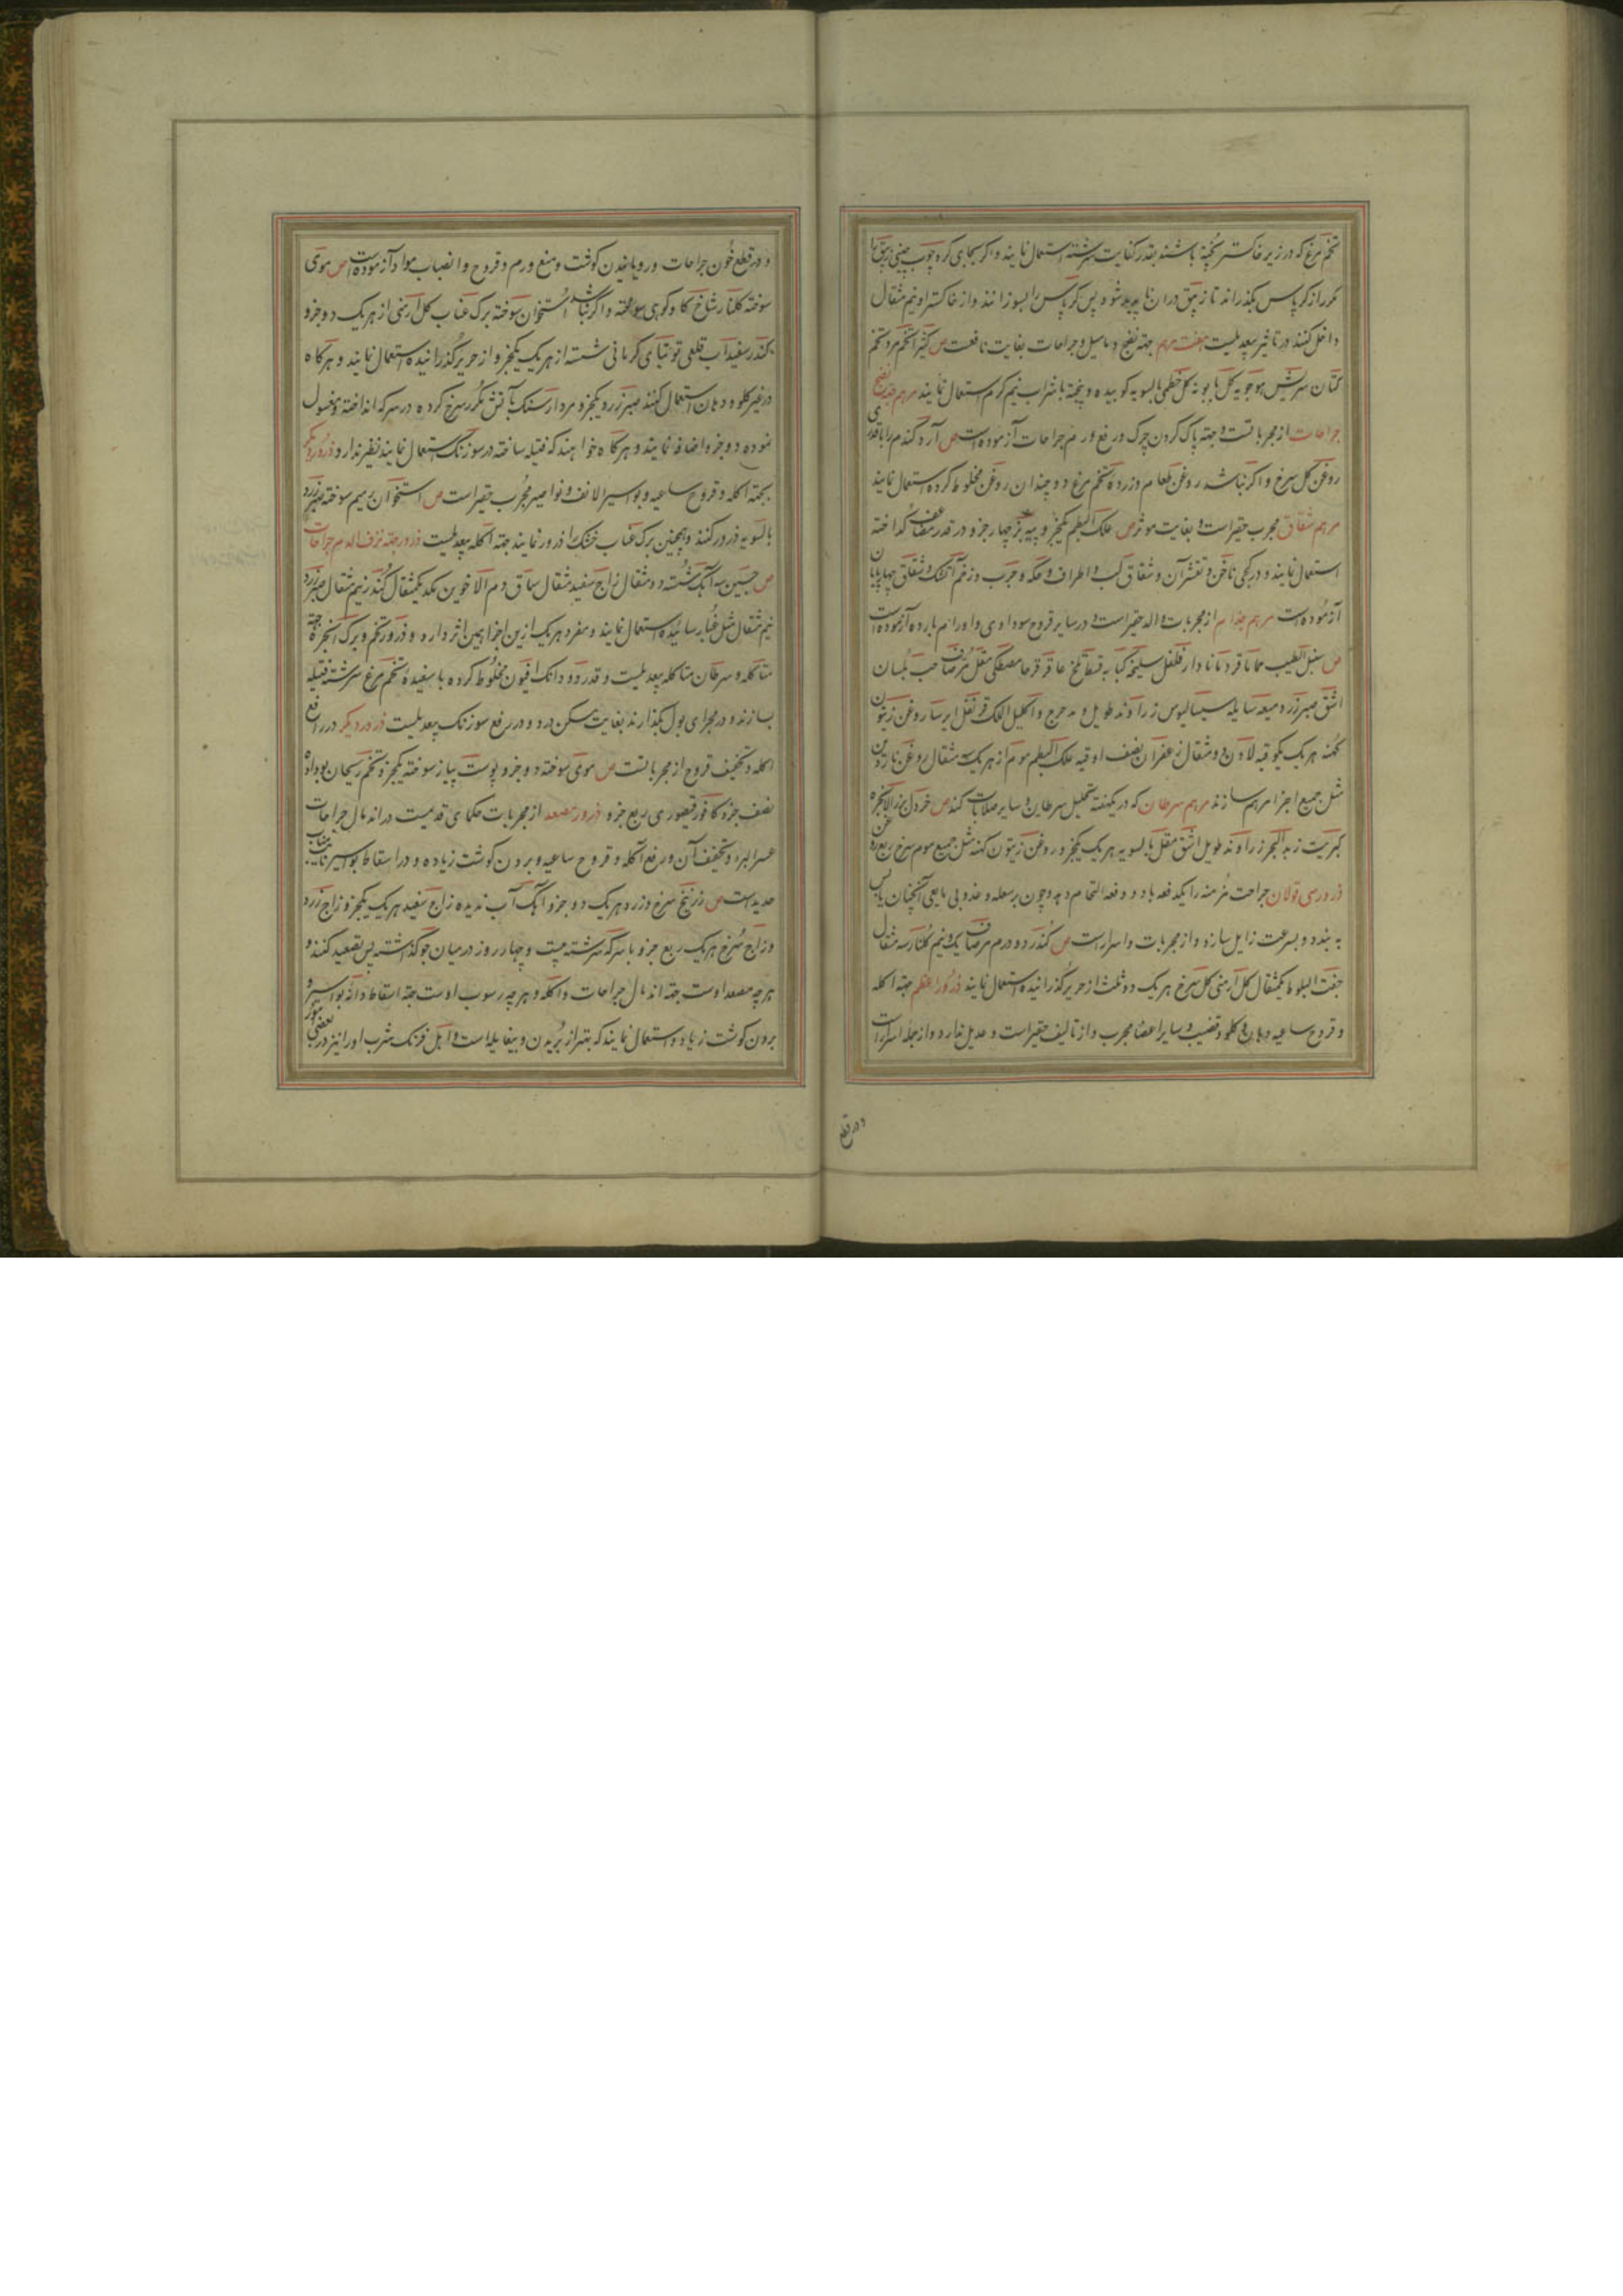 تخم مرغ که در زیر خاکستر پخته باشند بقدر کفایت سرشته استعمال نمایند و اکر بجای کرد چوب چینی زیبق را
مکرر از کرپاس بکذرانند تا زیبق در ان ناپدید شود پس کرپاس را بسوزانند و از خاکستر او نیم مثقال
داخل کنند در تاثیر بیعدیلست هفت مرهم جهته نضج دمامیل و جراحات بغایت نافعست ص کثیرا تخم مرو تخم
کتان سریش هوجویه کل بابونه کل خطمی بالسویه کوبیده و پخته با شراب نیم کرم استعمال نمایند مرهم جهته نضج
جراحات از مجرباتست و جهته پاک کردن چرک و رفع ورم جراحات آزموده است ص آرد کندم را با قدری
روغن کل سرخ و اکر نباشد روغن طعام و زرده تخم مرغ دو چندان روغن مخلوط کرده استعمال نمایند
مرهم شقاق مجرب حقیر است و بغایت موثر ص علک البطم یکجزو پیه بز چهار جزو در قدر مضاعف کداخته
استعمال نمایند و در کجی ناخن و تقشر آن و شقاق لب و اطراف و حکه و جرب و زخم آتشک و شقاق چهارپایان
آزموده است مرهم جذام از مجربات والد حقیر است و در سایر قروح سوداوی و اورام بارده آزموده است
ص سنبل الطیب حماما قردمانا دارفلفل سلیخه کبابه قسط تلخ عاقرقرحا مصطکی مقل مر صاف حب بلسان
اشق صبر زرد میعه سایله سیسالیوس زراوند طویل و مدحرج و اکلیل الملک قرنفل ایرسا روغن زیتون
کهنه هر یک یکوقیه لادن دو مثقال زعفران نصف اوقیه علک البطم موم از هر یک مثقال روغن ناردین
مثل جمیع اجزا مرهم سازند مرهم سرطان که در یکهفته تحلیل سرطان و سایر صلابات کند ص خردل بزر الانجره
کبریت زبد البحر زراوند طویل اشق مقل بالسویه هر یک یکجزو روغن زیتون کهنه مثل جمیع موم سرخ ربع روغن
ذرور سی تولان جراحت مزمنه را یکدفعه یا دو دفعه التحام دهد و چون بر سعله و خدوبی مایعی آنچنان یابس
به بندد و بسرعت زایل سازد و از مجربات و اسرار است ص کندر دو درم مر صاف یکدرم و نیم کلنار سه مثقال
جفت البلوط یکمثقال کل ارمنی کل سرخ هر یک دو ثلث از حریر کذرانیده استعمال نمایند ذرور اعظم جهته اکله
و قروح ساعیه و دهان و کلو و قضیب و سایر اعضا مجرب و از تالیف حقیر است و عدیل ندارد و از جمله اسرار است
و در قطع
و در قطع خون جراحات و رویانیدن کوشت و منع ورم و قروح و انصباب مواد آزموده است ص موی
سوخته کلنار شاخ کاو کوهی سوخته و اکر نباشد استخوان سوخته برک عناب کل ارمنی از هر یک دو جزو
کندر سفیداب قلعی توتیای کرمانی شسته از هر یک یکجزو از حریر کذرانیده استعمال نمایند و هرکاه
در غیر کلو و دهان استعمال کنند صبر زرد یکجزو مردار سنک بآتش مکرر سرخ کرده در سرکه انداخته و مغسول
نموده دو جزو اضافه نمایند و هرکاه خواهند که فتیله ساخته در سوزنک استعمال نمایند نظیر ندارد ذرور دیکر
بجهته اکله و قروح ساعیه و بواسیر الانف و نواصیر مجرب حقیر است ص استخوان رمیم سوخته صبر زرد
بالسویه ذرور کنند و همچنین برک عناب خشک را ذرور نمایند جهته اکله بیعدیلست ذرور جهته نزف الدم جراحات
ص جبسین سه آهک شسته دو مثقال زاج سفید مثقال سماق دم الاخوین هر یک یکمثقال کندر نیم مثقال صبر زرد
نیم مثقال مثل غبار سائیده استعمال نمایند و مفرد هر یک ازین اجزا همین اثر دارد و ذرور تخم و برک انجره جهته
متاکله و سرطان متاکله بیعدیلست و قدر دو دانک افیون مخلوط کرده با سفیده تخم مرغ سرشته فتیله
بسازند و در مجرای بول بکذارند بغایت مسکن درد و در رفع سوزنک بیعدیلست ذرور دیکر در رفع
اکله و تخفیف قروح از مجرباتست ص موی سوخته دو جزو پوست پیاز سوخته یکجزو تخم ریحان بو داده
نصف جزو کافور قیصوری ربع جزو ذرور مصعد از مجربات حکمای قدیمست در اندمال جراحات
عسر البرء و تخفیف آن و رفع اکله و قروح ساعیه و بردن کوشت زیاده و در اسقاط بواسیر نایب مناب
حدید است ص زرنیخ سرخ و زرد هر یک دو جزو آهک آب ندیده زاج سفید هر یک یکجزو زاج زرد
و زاج سرخ هر یک ربع جزو با سرکه سرشته بیست و چهار روز در میان جو کذاشته پس تصعید کنند و
هرچه مصعد اوست جهته اندمال جراحات و اکله و هرچه رسوب اوست جهته اسقاط دانه بواسیر و
بردن کوشت زیاد استعمال نمایند که بهتر از بریدن و بیغایله است و اهل فرنک شرب او را نیز در بعضی